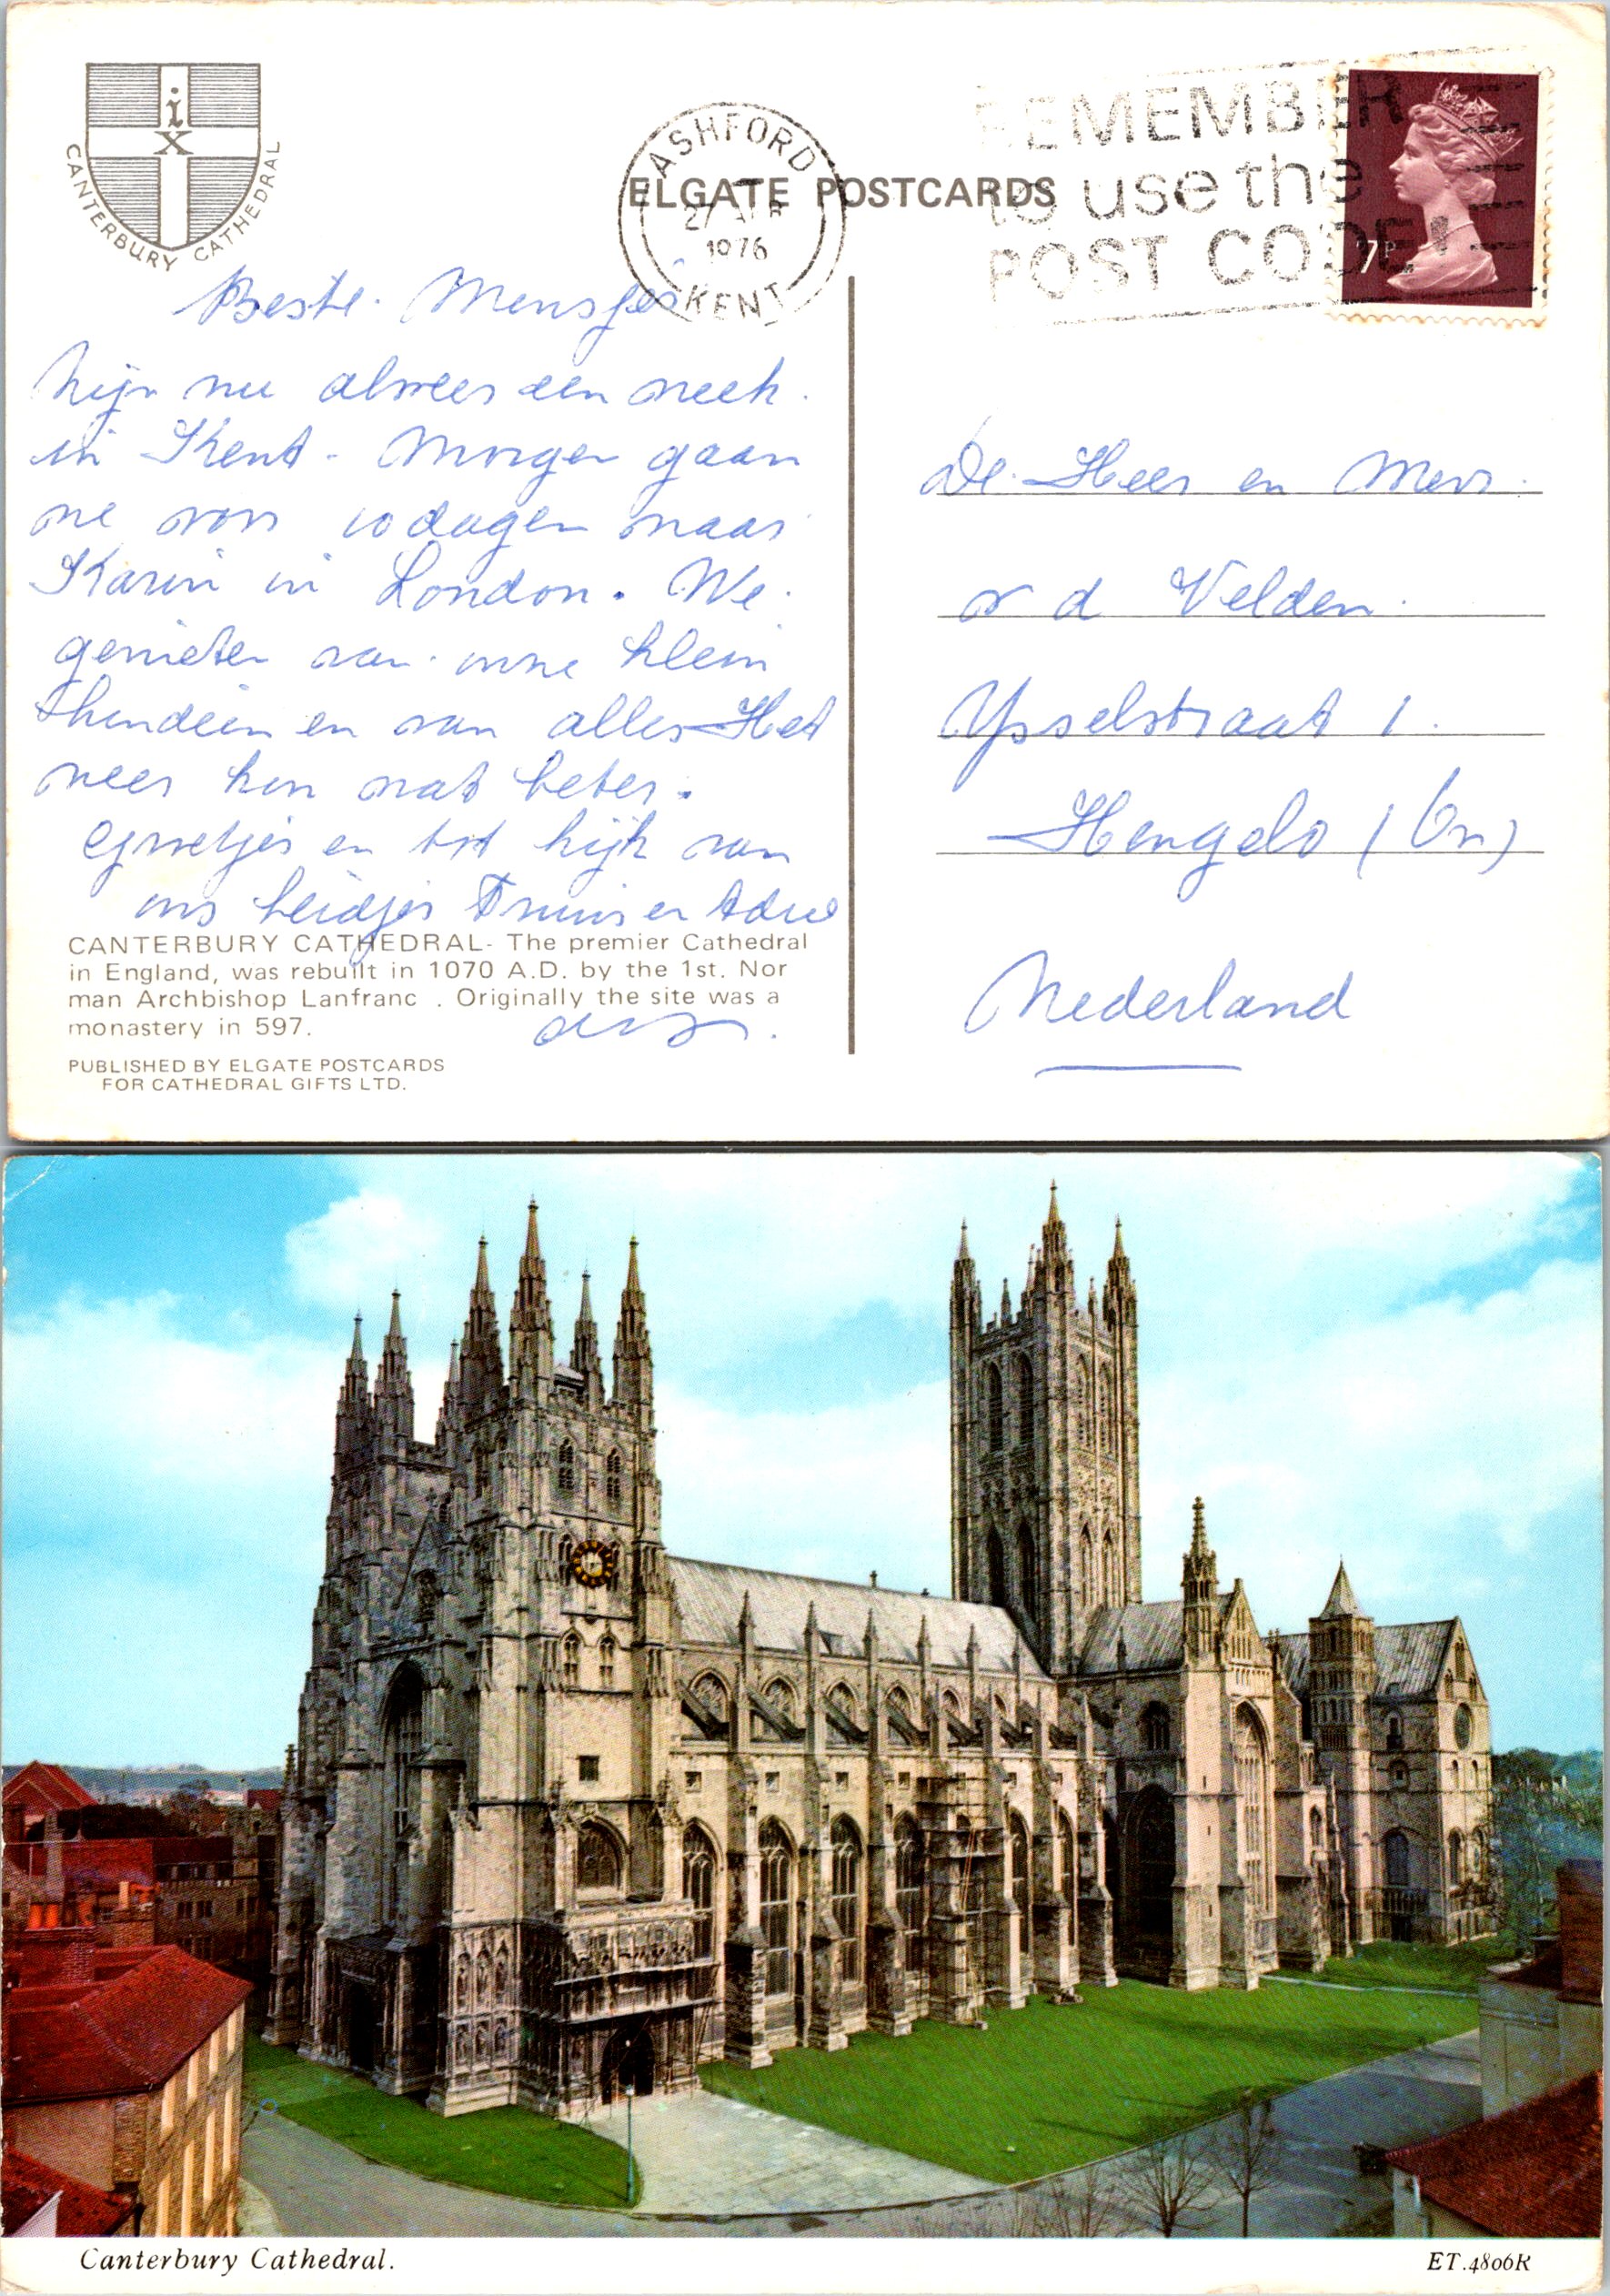 ix
CANTERBURY CATHEDRAL
ASHFORD
27
1976
KENT
ELGATE POSTCARDS
REMEMBER
to use the
POST CODE!
7P
Beste Mensjes
Zijn nu alweer een week
in Kent - Morgen gaan
we voor 10 dagen naar
Karin in London. We
genieten van onze klein
en van alles Het
weer kon wat beter.
Groetjes en tot kijk van
ons beidjes Truus en
CANTERBURY CATHEDRAL- The premier Cathedral
in England, was rebuilt in 1070 A.D. by the 1st. Nor
man Archbishop Lanfranc . Originally the site was a
monastery in 597.
PUBLISHED BY ELGATE POSTCARDS
FOR CATHEDRAL GIFTS LTD.
De Heer en Mevr.
v d Velden
Ysselstraat 1.
Hengelo (Ov)
Nederland
Canterbury Cathedral.
ET.4806R